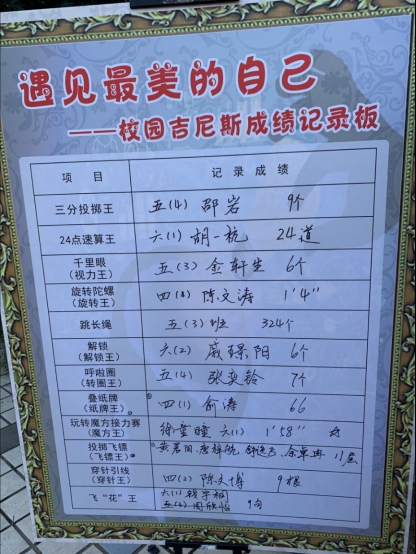 遇见最美的自己
——校园吉尼斯成绩记录板
项 目 记 录 成 绩
三分投掷王 五(4) 邵岩 9个
24点速算王 六(1) 胡一杭 24道
千里眼
(视力王) 五(3) 金轩生 6个
旋转陀螺
(旋转王) 四(8) 陈文涛 1'4"
跳长绳 五(3)班 324个
解锁
(解锁王) 六(2) 阳 6个
呼啦圈
(转圈王) 五(4) 张奕铃 7个
叠纸牌
(纸牌王) 四(1) 俞涛 66
玩转魔方接力赛
(魔方王) 徐 六(1) 1'58"
投掷飞镖
(飞镖王)
穿针引线
(穿针王) 四(2) 陈文博 9根
飞“花”王 六(1)
五(4) 周欣怡 9句